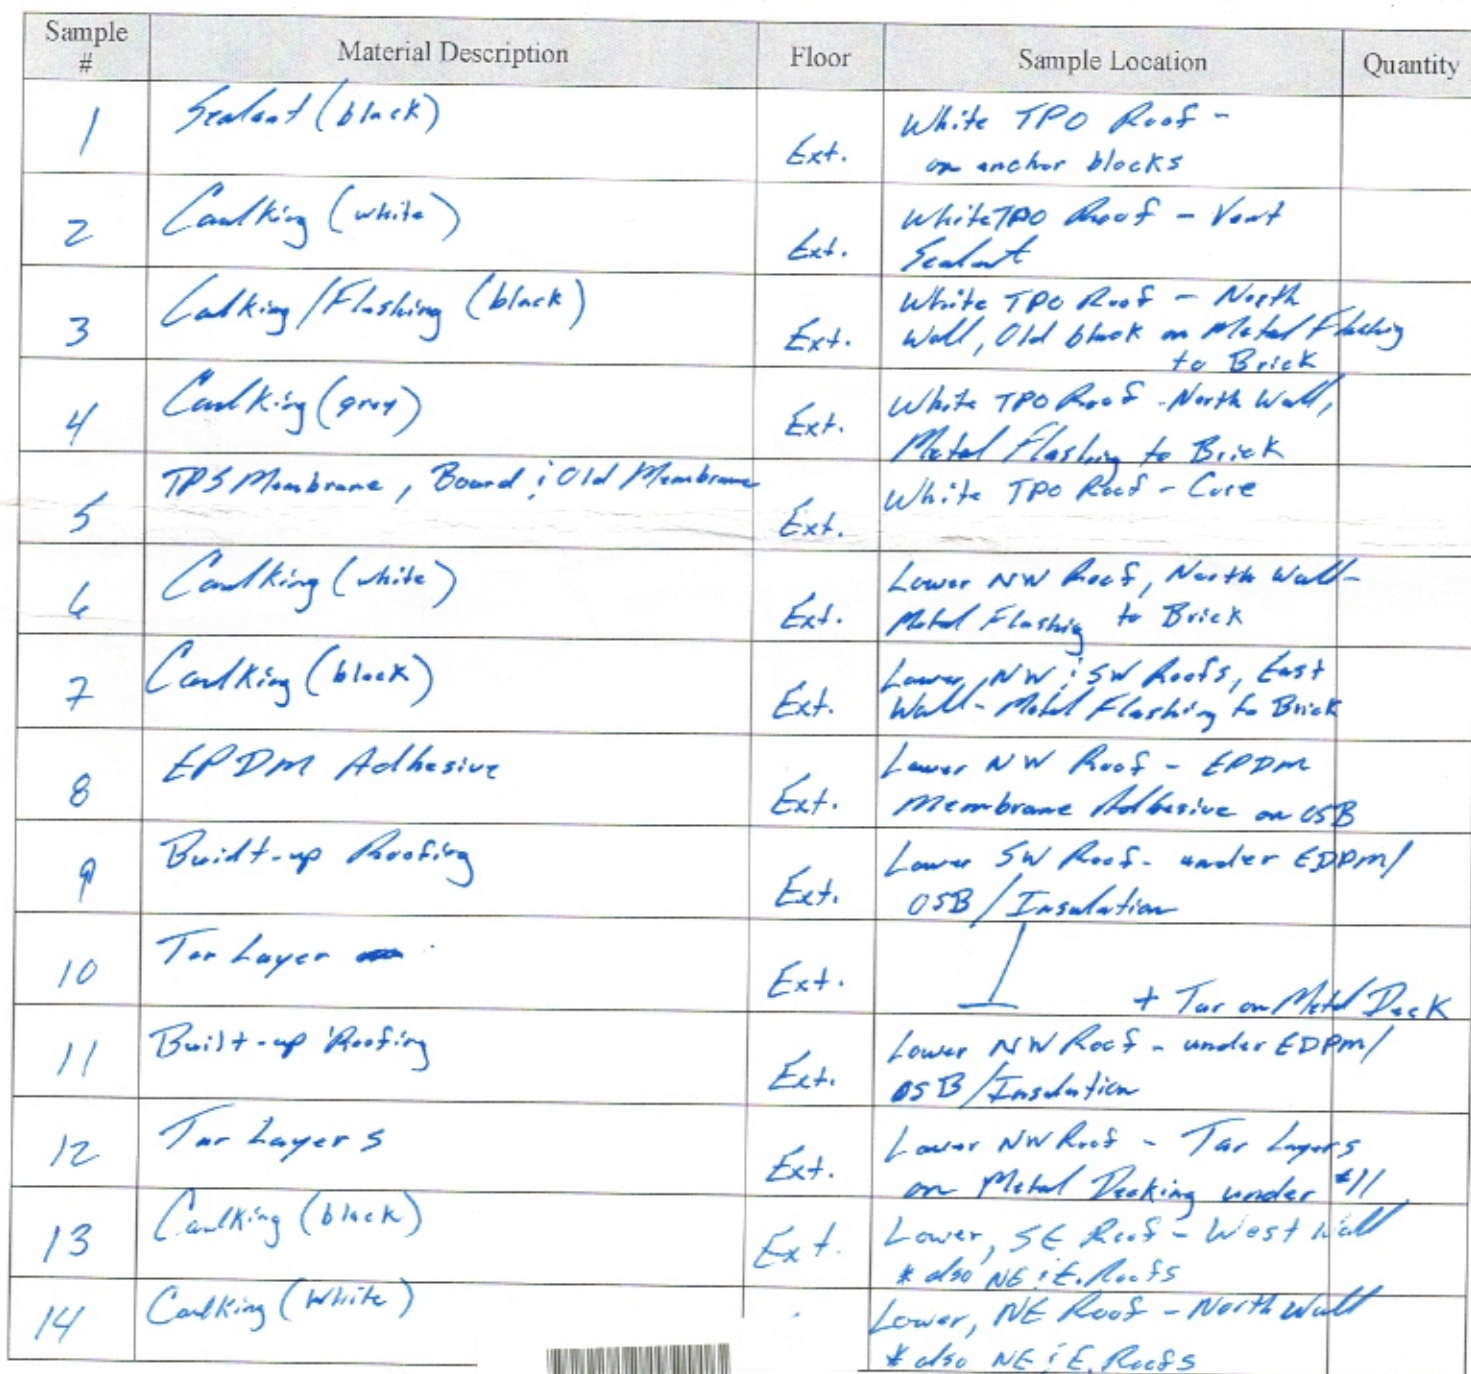 Sample # Material Description Floor Sample Location Quantity
1 Sealant (black) Ext. White TPO Roof -
on anchor blocks
2 Caulking (white) Ext. White TPO Roof - Vent
Sealant
3 Calking/Flashing (black) Ext. White TPO Roof - North
Wall, Old black on Metal Flashing
to Brick
4 Caulking (grey) Ext. White TPO Roof - North Wall,
Metal Flashing to Brick
5 TPS Membrane, Board & Old Membrane Ext. White TPO Roof - Core
6 Caulking (white) Ext. Lower NW Roof, North Wall-
Metal Flashing to Brick
7 Caulking (black) Ext. Lower, NW & SW Roofs, East
Wall- Metal Flashing to Brick
8 EPDM Adhesive Ext. Lower NW Roof - EPDM
Membrane Adhesive on OSB
9 Built-up Roofing Ext. Lower SW Roof- under EDPM/
OSB/Insulation
10 Tar Layer Ext.
+ Tar on Metal Deck
11 Built-up Roofing Ext. Lower NW Roof - under EDPM/
OSB/Insulation
12 Tar Layers Ext. Lower NW Roof - Tar Layers
on Metal Decking under #11
13 Caulking (black) Ext. Lower, SE Roof - West Wall
* also NE & E. Roofs
14 Caulking (white) Lower, NE Roof - North Wall
* also NE & E. Roofs